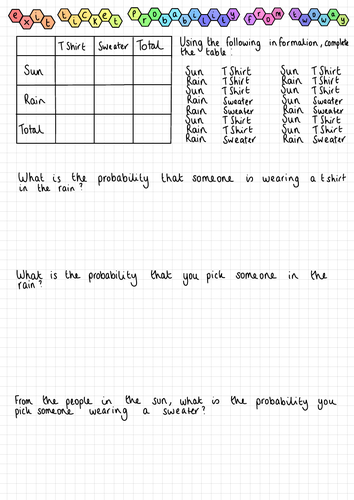 exit ticket probability from twoway
T Shirt Sweater Total
Sun
Rain
Total
Using the following information, complete
the table:
Sun T Shirt Sun T Shirt
Rain T Shirt Rain T Shirt
Sun T Shirt Sun T Shirt
Rain Sweater Sun Sweater
Rain Sweater Rain Sweater
Sun T Shirt Sun T Shirt
Rain T Shirt Rain T Shirt
Rain Sweater Rain Sweater
What is the probability that someone is wearing a t shirt
in the rain?
What is the probability that you pick someone in the
rain?
From the people in the sun, what is the probability you
pick someone wearing a sweater?